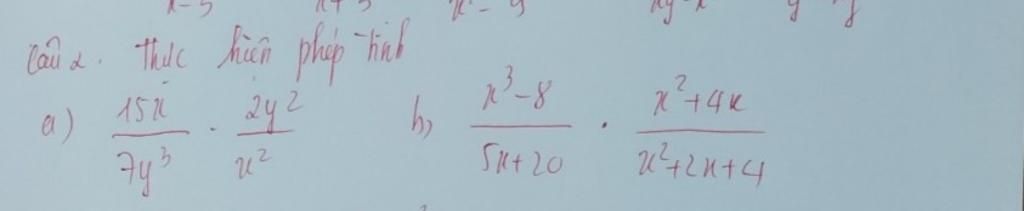 Câu 2. Thực hiện phép tính
a) 15x/7y³ · 2y²/x² b) x³-8/5x+20 · x²+4x/x²+2x+4